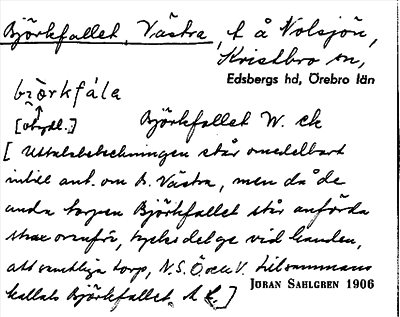 Björkfallet, Västra, t å Nolsjön,
Kristbro sn,
Edsbergs hd, Örebro län
biörkfála
[otydl.]
Björkfallet W. ek
[Uttalsbeteckningen står omedelbart
intill ant. om B. Västra, men då de
andra torpen Björkfallet står anförda
strax ovanför, tyckes det ge vid handen,
att samtliga torp, N. S. Ö. o. V. tillsammans
kallats Björkfallet.]
JÖRAN SAHLGREN 1906